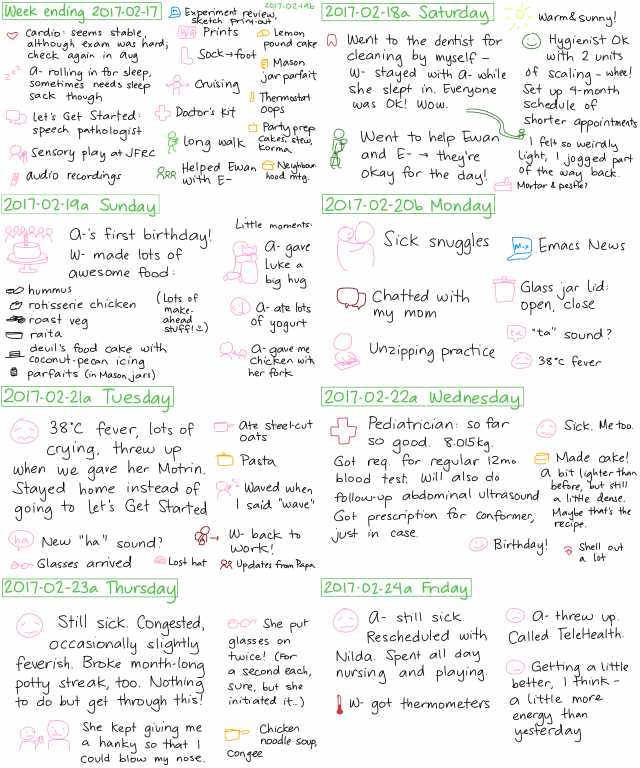 Week ending 2017-02-17
2017-02-19b
Experiment review,
sketch print-out
Cardio: seems stable,
although exam was hard;
check again in aug
A- rolling in for sleep,
sometimes needs sleep
sack though
Let's Get Started:
speech pathologist
Sensory play at JFRC
audio recordings
Prints
Sock→foot
Cruising
Doctor's kit
Long walk
Helped Ewan
with E-
Lemon
pound cake
Mason
jar parfait
Thermostat
oops
Party prep:
cakes, stew,
korma
Neighbour-
hood mtg.
2017-02-18a Saturday
Warm & sunny!
Went to the dentist for
cleaning by myself -
W- stayed with A- while
she slept in. Everyone
was OK! Wow.
Went to help Ewan
and E- → they're
okay for the day!
Hygienist OK
with 2 units
of scaling - whee!
Set up 4-month
schedule of
shorter appointments
I felt so weirdly
light, I jogged part
of the way back.
Mortar & pestle?
2017-02-19a Sunday
A-'s first birthday!
W- made lots of
awesome food:
hummus
rotisserie chicken
roast veg
raita
devil's food cake with
coconut-pecan icing
parfaits (in Mason jars)
(Lots of
make-
ahead
stuff! :))
Little moments:
A- gave
Luke a
big hug
A- ate lots
of yogurt
A- gave me
chicken with
her fork
2017-02-20b Monday
Sick snuggles
Chatted with
my mom
Unzipping practice
M-x
Emacs News
Glass jar lid:
open, close
ta
"ta" sound?
38°C fever
2017-02-21a Tuesday
38°C fever, lots of
crying, threw up
when we gave her Motrin.
Stayed home instead of
going to Let's Get Started
ha
New "ha" sound?
Glasses arrived
Lost hat
Ate steel-cut
oats
Pasta
Waved when
I said "wave"
W- back to
work!
Updates from Papa
2017-02-22a Wednesday
Pediatrician: so far
so good. 8.015kg.
Got req. for regular 12mo
blood test. Will also do
follow-up abdominal ultrasound
Got prescription for conformer,
just in case.
Birthday!
Sick. Me too.
Made cake!
A bit lighter than
before, but still
a little dense.
Maybe that's the
recipe.
Shell out
a lot
2017-02-23a Thursday
Still sick. Congested,
occasionally slightly
feverish. Broke month-long
potty streak, too. Nothing
to do but get through this!
She kept giving me
a hanky so that I
could blow my nose.
She put
glasses on
twice! (For
a second each,
sure, but she
initiated it...)
Chicken
noodle soup,
congee
2017-02-24a Friday
A- still sick.
Rescheduled with
Nilda. Spent all day
nursing and playing.
W- got thermometers
A- threw up.
Called TeleHealth.
Getting a little
better, I think -
a little more
energy than
yesterday